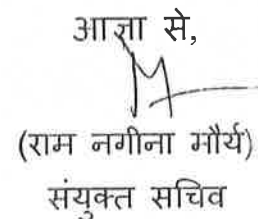 आज्ञा से,
(राम नगीना मौर्य)
संयुक्त सचिव